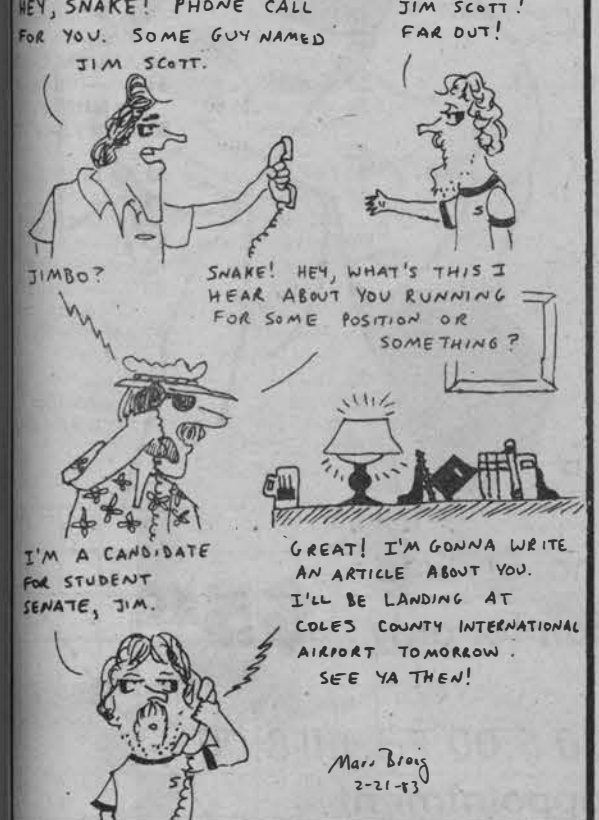 HEY, SNAKE! PHONE CALL
FOR YOU. SOME GUY NAMED
JIM SCOTT.
JIM SCOTT!
FAR OUT!
S
JIMBO?
SNAKE! HEY, WHAT'S THIS I
HEAR ABOUT YOU RUNNING
FOR SOME POSITION OR
SOMETHING?
I'M A CANDIDATE
FOR STUDENT
SENATE, JIM.
GREAT! I'M GONNA WRITE
AN ARTICLE ABOUT YOU.
I'LL BE LANDING AT
COLES COUNTY INTERNATIONAL
AIRPORT TOMORROW.
SEE YA THEN!
S
2-21-83